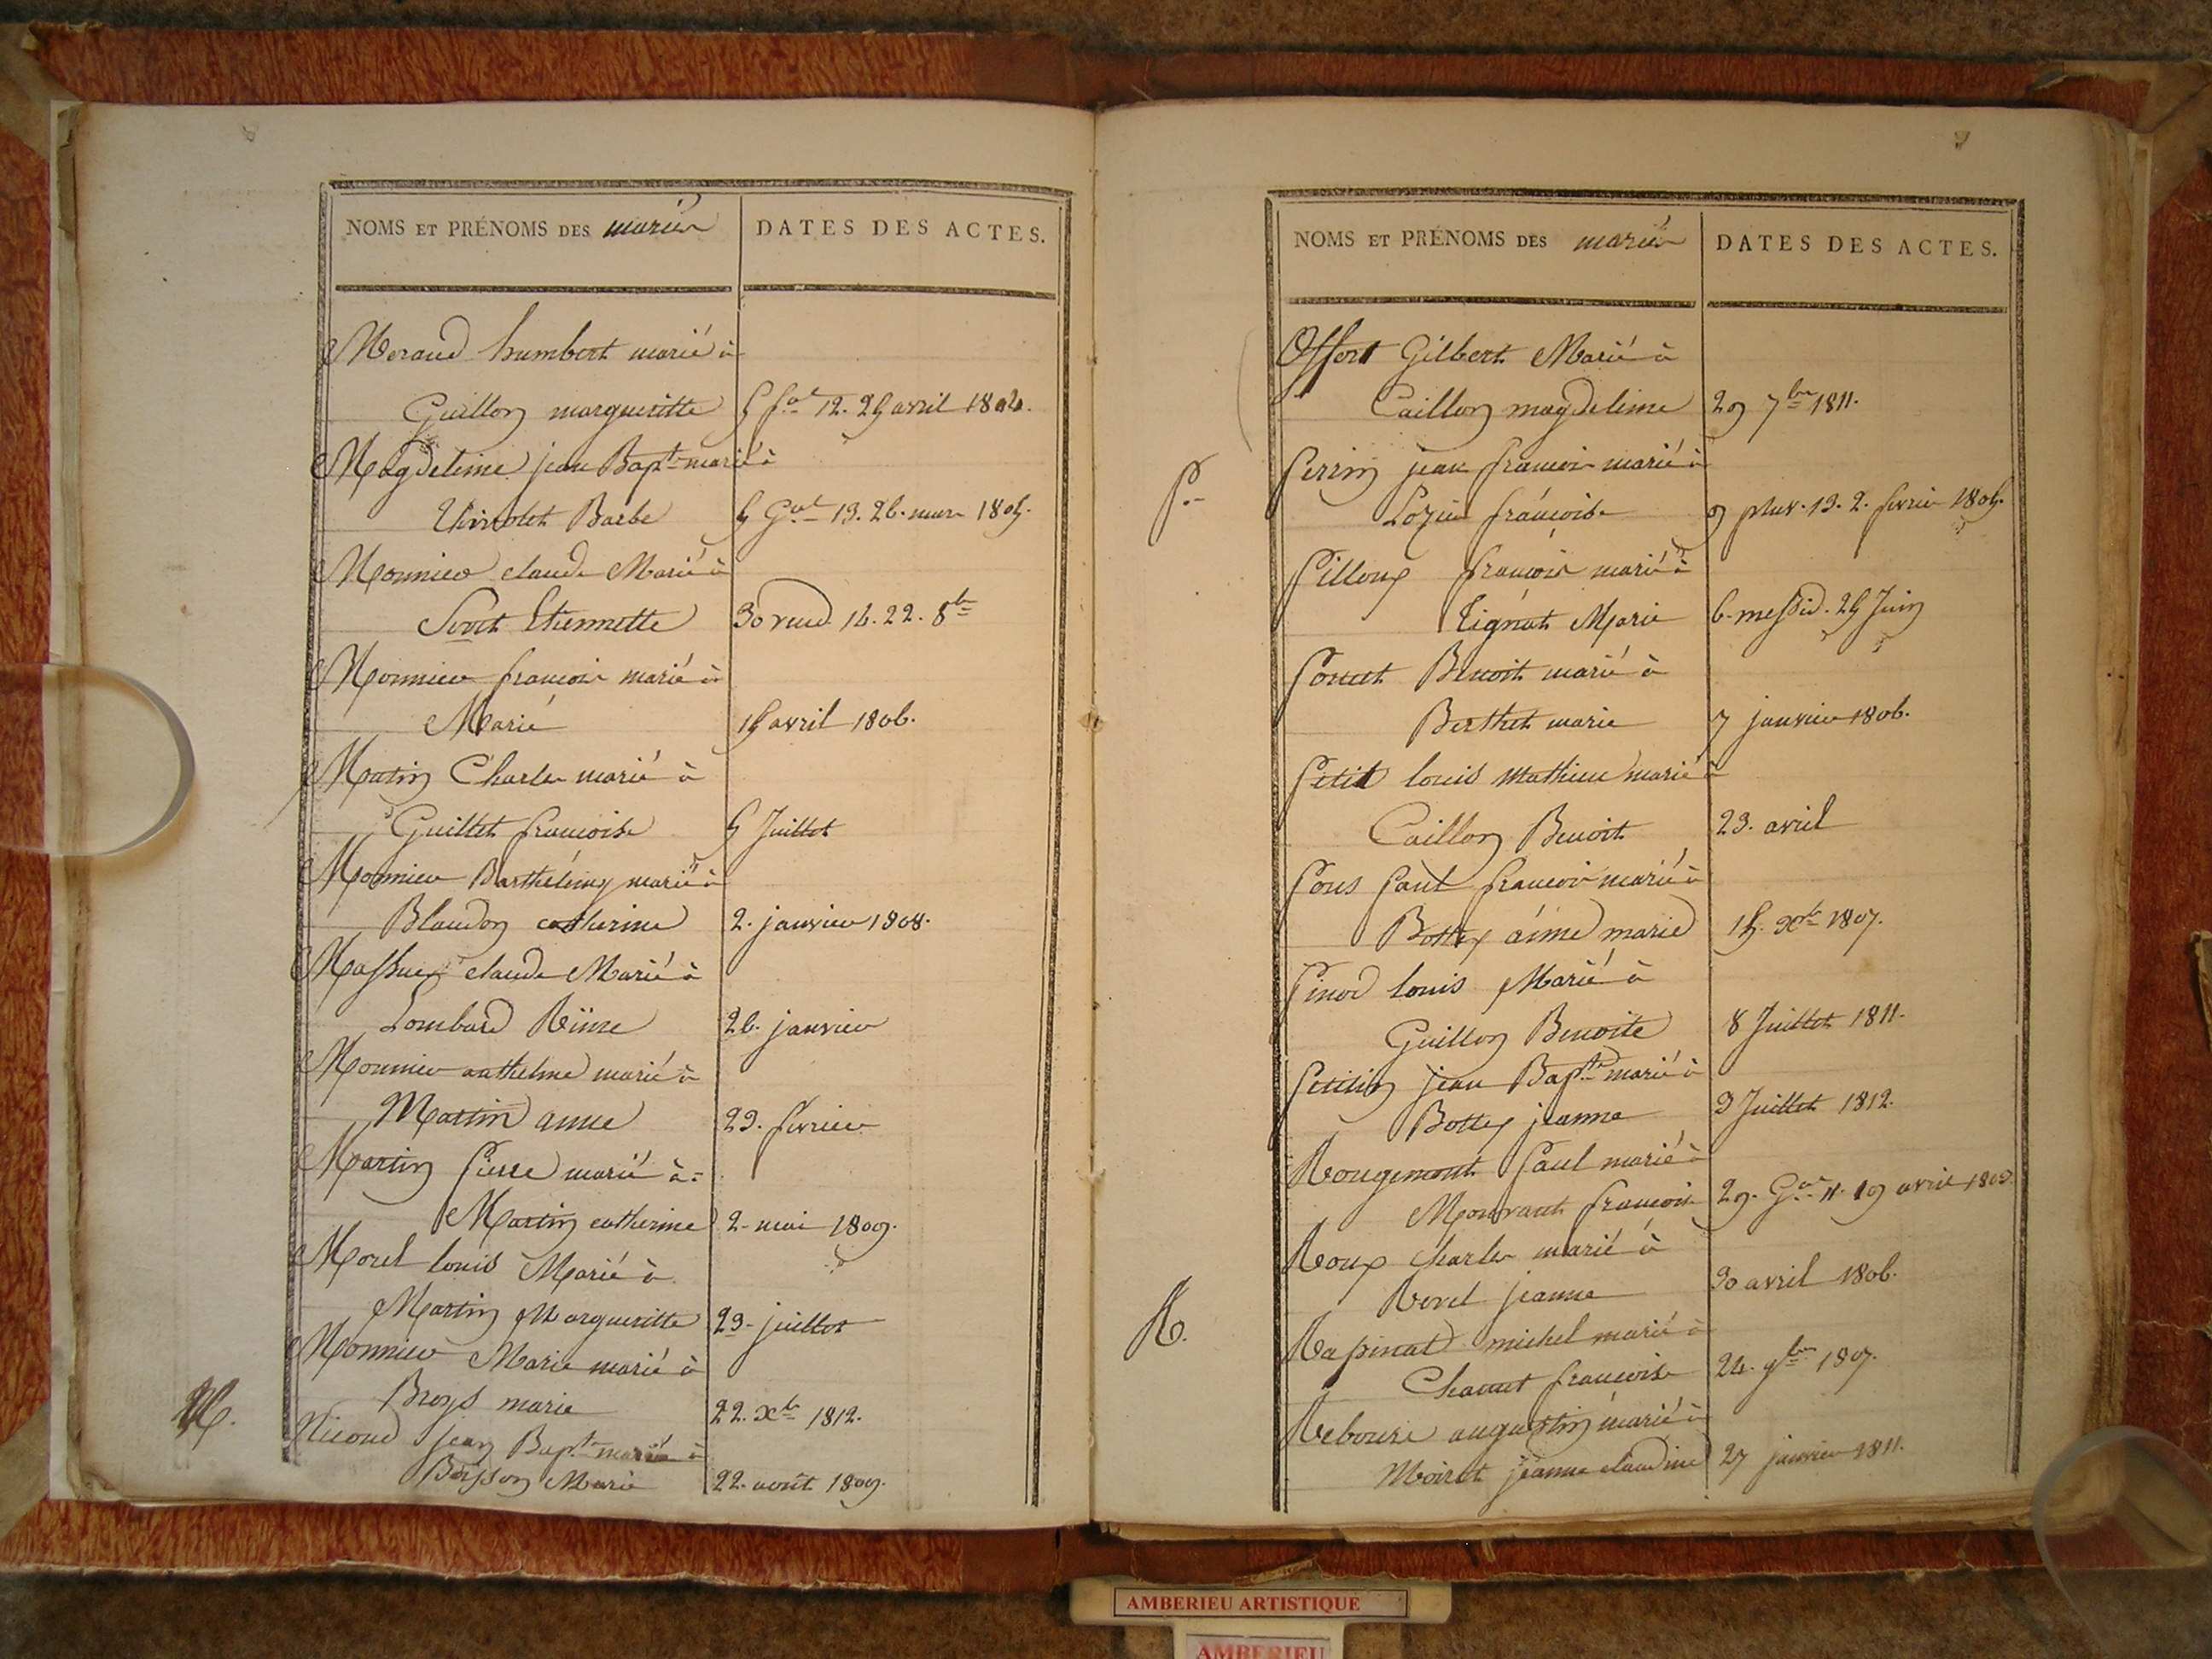 NOMS ET PRÉNOMS DES mariés
DATES DES ACTES.
Moraud humbert marié à
Guillon margueritte 5 f.al 12. 25 avril 1804.
Magdeleine jean Bap.te marié à
Barbe 5 G.al 13. 26. mars 1805.
Monnier claude Marié à
Etiennette 30 vend. 14. 22. 8.bre
Monnier francois marié à
Marie 15 avril 1806.
Matin Charles marié à
Guillet francoise 5 Juillet
Monnier Barthélemy marié à
Blandon catherine 2. janvier 1808.
claude Marié à
Lombard 26. janvier
Monnier anthelme marié à
Martin anne 23. fevrier
Martin Pierre marié à =
Martin catherine 2. mai 1809.
Morel louis Marié à
Martin Margueritte 23. juillet
Monnier Marie marié à
marie 22. X.bre 1812.
N.
Nicoud Jean Bapt.te marié à
Boisson Marie 22. août 1809.
NOMS ET PRÉNOMS DES mariés
DATES DES ACTES.
Offort Gilbert Marié à
Caillon magdeleine 29 7.bre 1811.
P.
Perrin jean francois marié à
francoise 9 pluv. 13. 2. fevrier 1805.
Pilloux francois marié à
Tignat Marie 6. messid. 25 Juin
Poncet Benoit marié à
Berthet marie 7 janvier 1806.
Petit louis mathieu marié à
Caillon Benoit 23. avril
Pons Paul francois marié à
Bottex aimé marie 15. X.bre 1807.
Pinod louis Marié à
Guillon Benoite 8 Juillet 1811.
Petitin jean Bap.te marié à
Bottex jeanne 3 Juillet 1812.
Rougemont Paul marié à
Monvant francoise 29. G.al 11. 19 avril 1803.
R.
Roux Charles marié à
Revel jeanne 30 avril 1806.
Rapinat michel marié à
Chanut francoise 24. 9.bre 1807.
Rebours augustin marié à
Moiret jeanne claudine 27 janvier 1811.
AMBERIEU ARTISTIQUE
AMBERIEU